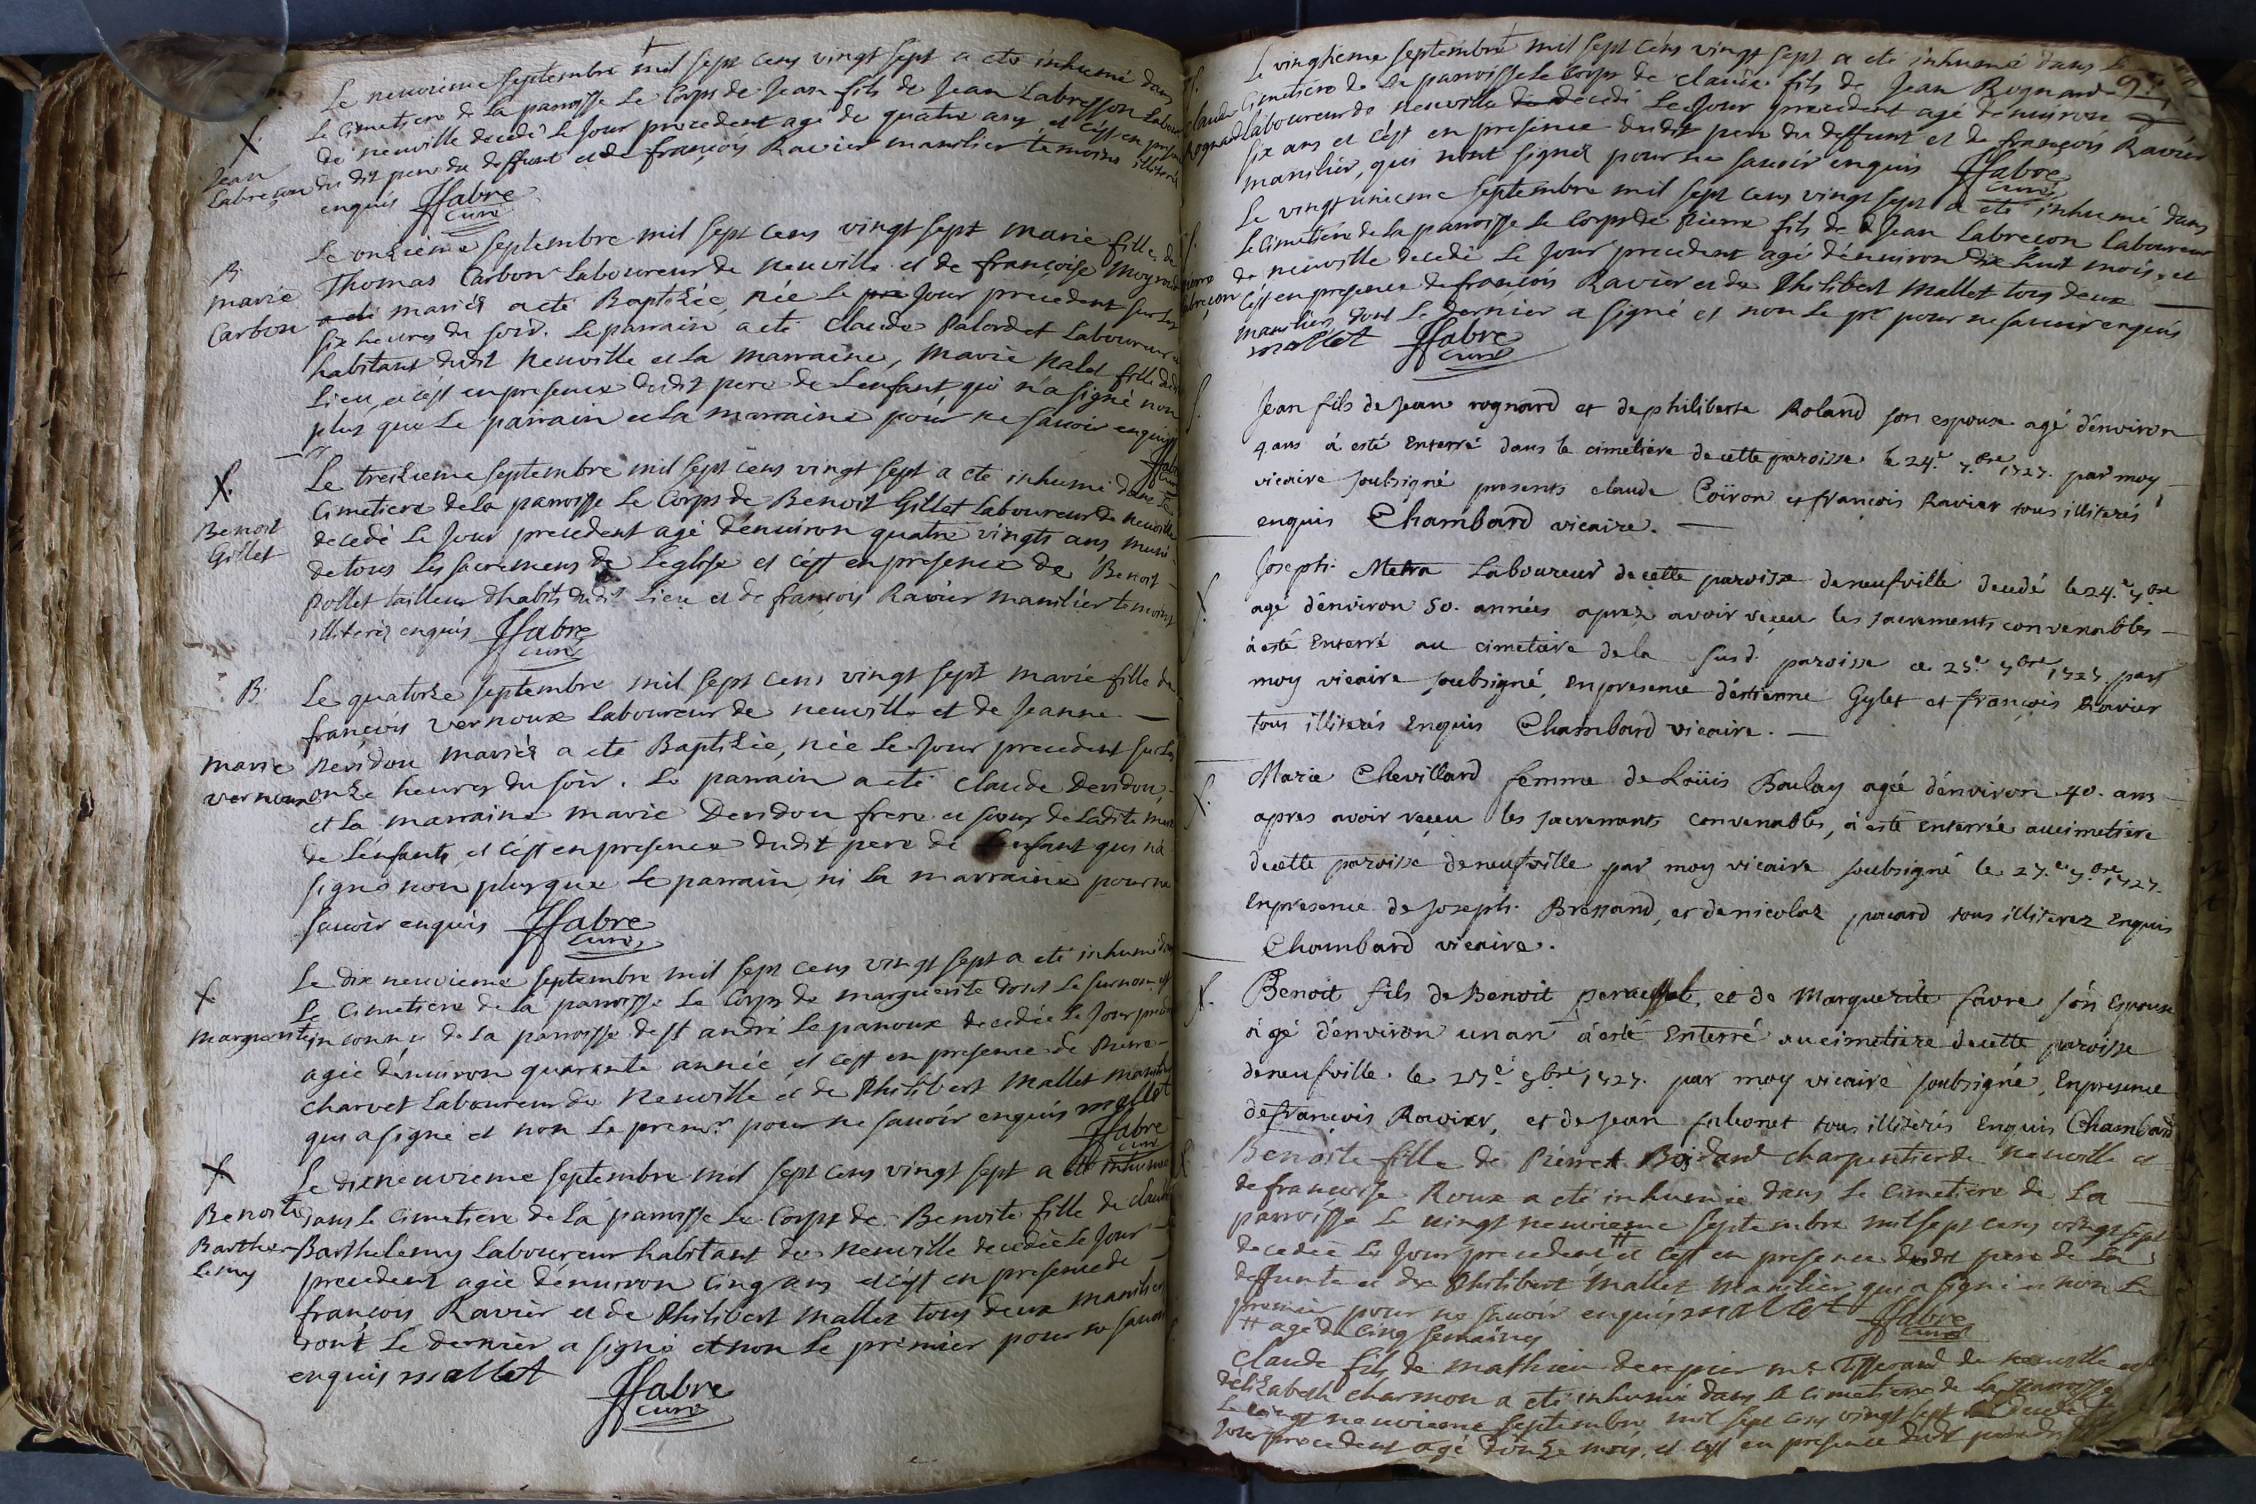 Le neuvieme septembre mil sept cens vingt sept a eté inhumé dans
Le Cimetiere de La parroisse Le Corps de Jean fils de Jean Labresson Labour
de neuville decedé Le Jour precedent agé de quatre ans et c'est en presen
Jean
Labreçon
du dit pere du deffunt et de françois Ravier manilier temoins illiterés
enquis ffabre
curé
B.
marie
Carbon
Le onzieme septembre mil sept cens vingt sept marie fille de
Thomas Carbon Laboureur de neuville et de françoise Moyrod
a eté mariés a eté Baptisée, née Le pre Jour precedent sur Les
six heures du soir. Le parrain a eté Claude Palordet Laboureur
habitant dudit neuville et La marraine, marie Nalet fille dudit
Lieu, et c'est en presence dudit pere de L'enfant qui n'a signé non
plus que Le parrain et La marraine pour ne savoir enquis
ffabre
Benoit
Gillet
Le treizieme septembre mil sept cens vingt sept a eté inhumé dans Le
Cimetiere de La parroisse Le Corps de Benoit Gillet Laboureur de neuville
decedé Le Jour precedent agé d'environ quatre vingts ans muni
de tous Les sacremens de L'eglise et c'est en presence de Benoit
Pollet tailleur d'habits dudit Lieu et de françois Ravier manilier temoins
illiterés enquis ffabre
curé
B.
marie
vernoux
Le quatorze septembre mil sept cens vingt sept marie fille de
françois vernoux laboureur de neuville et de Jeanne
Devidon mariés a eté Baptisée, née Le Jour precedent sur Les
onze heures du soir. Le parrain a eté Claude Devidon,
et La marraine marie Devidon frere et soeur de Ladite mere
de L'enfant, et c'est en presence dudit pere de L'enfant qui n'a
signé non plus que Le parrain, ni La marraine pour ne
savoir enquis ffabre
curé
marguerite
Le dix neuvieme septembre mil sept cens vingt sept a eté inhumé dans
Le Cimetiere de La parroisse Le Corps de marguerite dont Le surnom est
inconnu de La parroisse de st andré Le panoux decedée Le Jour preced
agée d'environ quarante année, et c'est en presence de Pierre
Charvet Laboureur de Neuville et de Philibert Mallet manilier
qui a signé et non Le premr pour ne savoir enquis mallet
ffabre
curé
Benoite
Barthe
Lemy
Le dixneuvieme septembre mil sept cens vingt sept a eté inhumé
dans Le Cimetiere de La parroisse Le Corps de Benoite fille de claude
Barthelemy Laboureur habitant de neuville decedée Le Jour
precedent agée d'environ Cinq ans et c'est en presence de
françois Ravier et de Philibert Mallet tous deux maniliers
dont Le dernier a signé et non Le premier pour ne savoir
enquis mallet
ffabre
curé
Claude
Rognard
Le vingtieme septembre mil sept cens vingt sept a eté inhumé dans Le
Cimetiere de La parroisse Le Corps de claude fils de Jean Rognard
laboureur de neuville decedé Le Jour precedent agé d'environ
six ans et c'est en presence dudit pere du deffunt et de françois Ravier
manilier, qui n'ont signés pour ne savoir enquis ffabre
curé
pierre
Labreçon
Le vingtunieme septembre mil sept cens vingt sept a eté inhumé dans
Le Cimetiere de La parroisse Le Corps de Pierre fils de Jean Labreçon laboureur
de neuville decedé Le Jour precedent agé d'environ dix huit mois, et
C'est en presence de françois Ravier et de Philibert Mallet tous deux
maniliers dont Le dernier a signé et non Le pre pour ne savoir enquis
mallet ffabre
curé
Jean fils de Jean rognard et de philiberte Roland son espouse agé d'environ
4 ans à esté Enterré dans le cimetière de cette paroisse le 24.e 7.bre 1727. par moy
vicaire soubsigné presents claude Coïron et francois Ravier tous illiterés
enquis Chambard vicaire.
Joseph Metra Laboureur de cette paroisse de neufville decedé le 24.e 7.bre
agé d'environ 50. années aprez avoir reçeu les sacrements convenables
à esté Enterré au cimetiere de la susd. paroisse ce 25.e 7bre 1727. par
moy vicaire soubsigné, en presence d'estienne Gylet et françois Ravier
tous illiterés Enquis Chambard vicaire.
Marie Chevillard femme de Loüis Boulay agée d'environ 40. ans
apres avoir reçeu les sacrements convenables, à esté Enterrée au cimetière
de cette paroisse de neufville par moy vicaire soubsigné le 27.e 7.bre 1727.
En presence de Joseph Bressand, et de nicolas pauard tous illiterez Enquis
Chambard vicaire.
Benoit fils de Benoit et de Marguerite favre son Espouse
agé d'environ un an à esté Enterré au cimetiere de cette paroisse
de neufville. le 27.e 7bre 1727. par moy vicaire soubsigné, En presence
de françois Ravier, et de Jean tous illiterés Enquis Chambard
Benoite fille de Pierre Boidard charpentier de neuville et
de francoise Roux a eté inhumée dans Le Cimetiere de La
parroisse Le vingt neuvieme septembre mil sept cens vingt sept
decedée Le Jour precedent # et c'est en presence dudit pere de La
deffunte et de Philibert Mallet manilier qui a signé et non Le
premier pour ne savoir enquis mallet ffabre
curé
# agée de cinq semaines
Claude fils de mathieu derepier me Tisserand de neuville et
d'elizabeth charmon a eté inhumé dans Le Cimetiere de La parroisse
Le vingt neuvieme septembre mil sept cens vingt sept decedé Le
Jour precedent agé d'onze mois, et c'est en presence dudit pere du